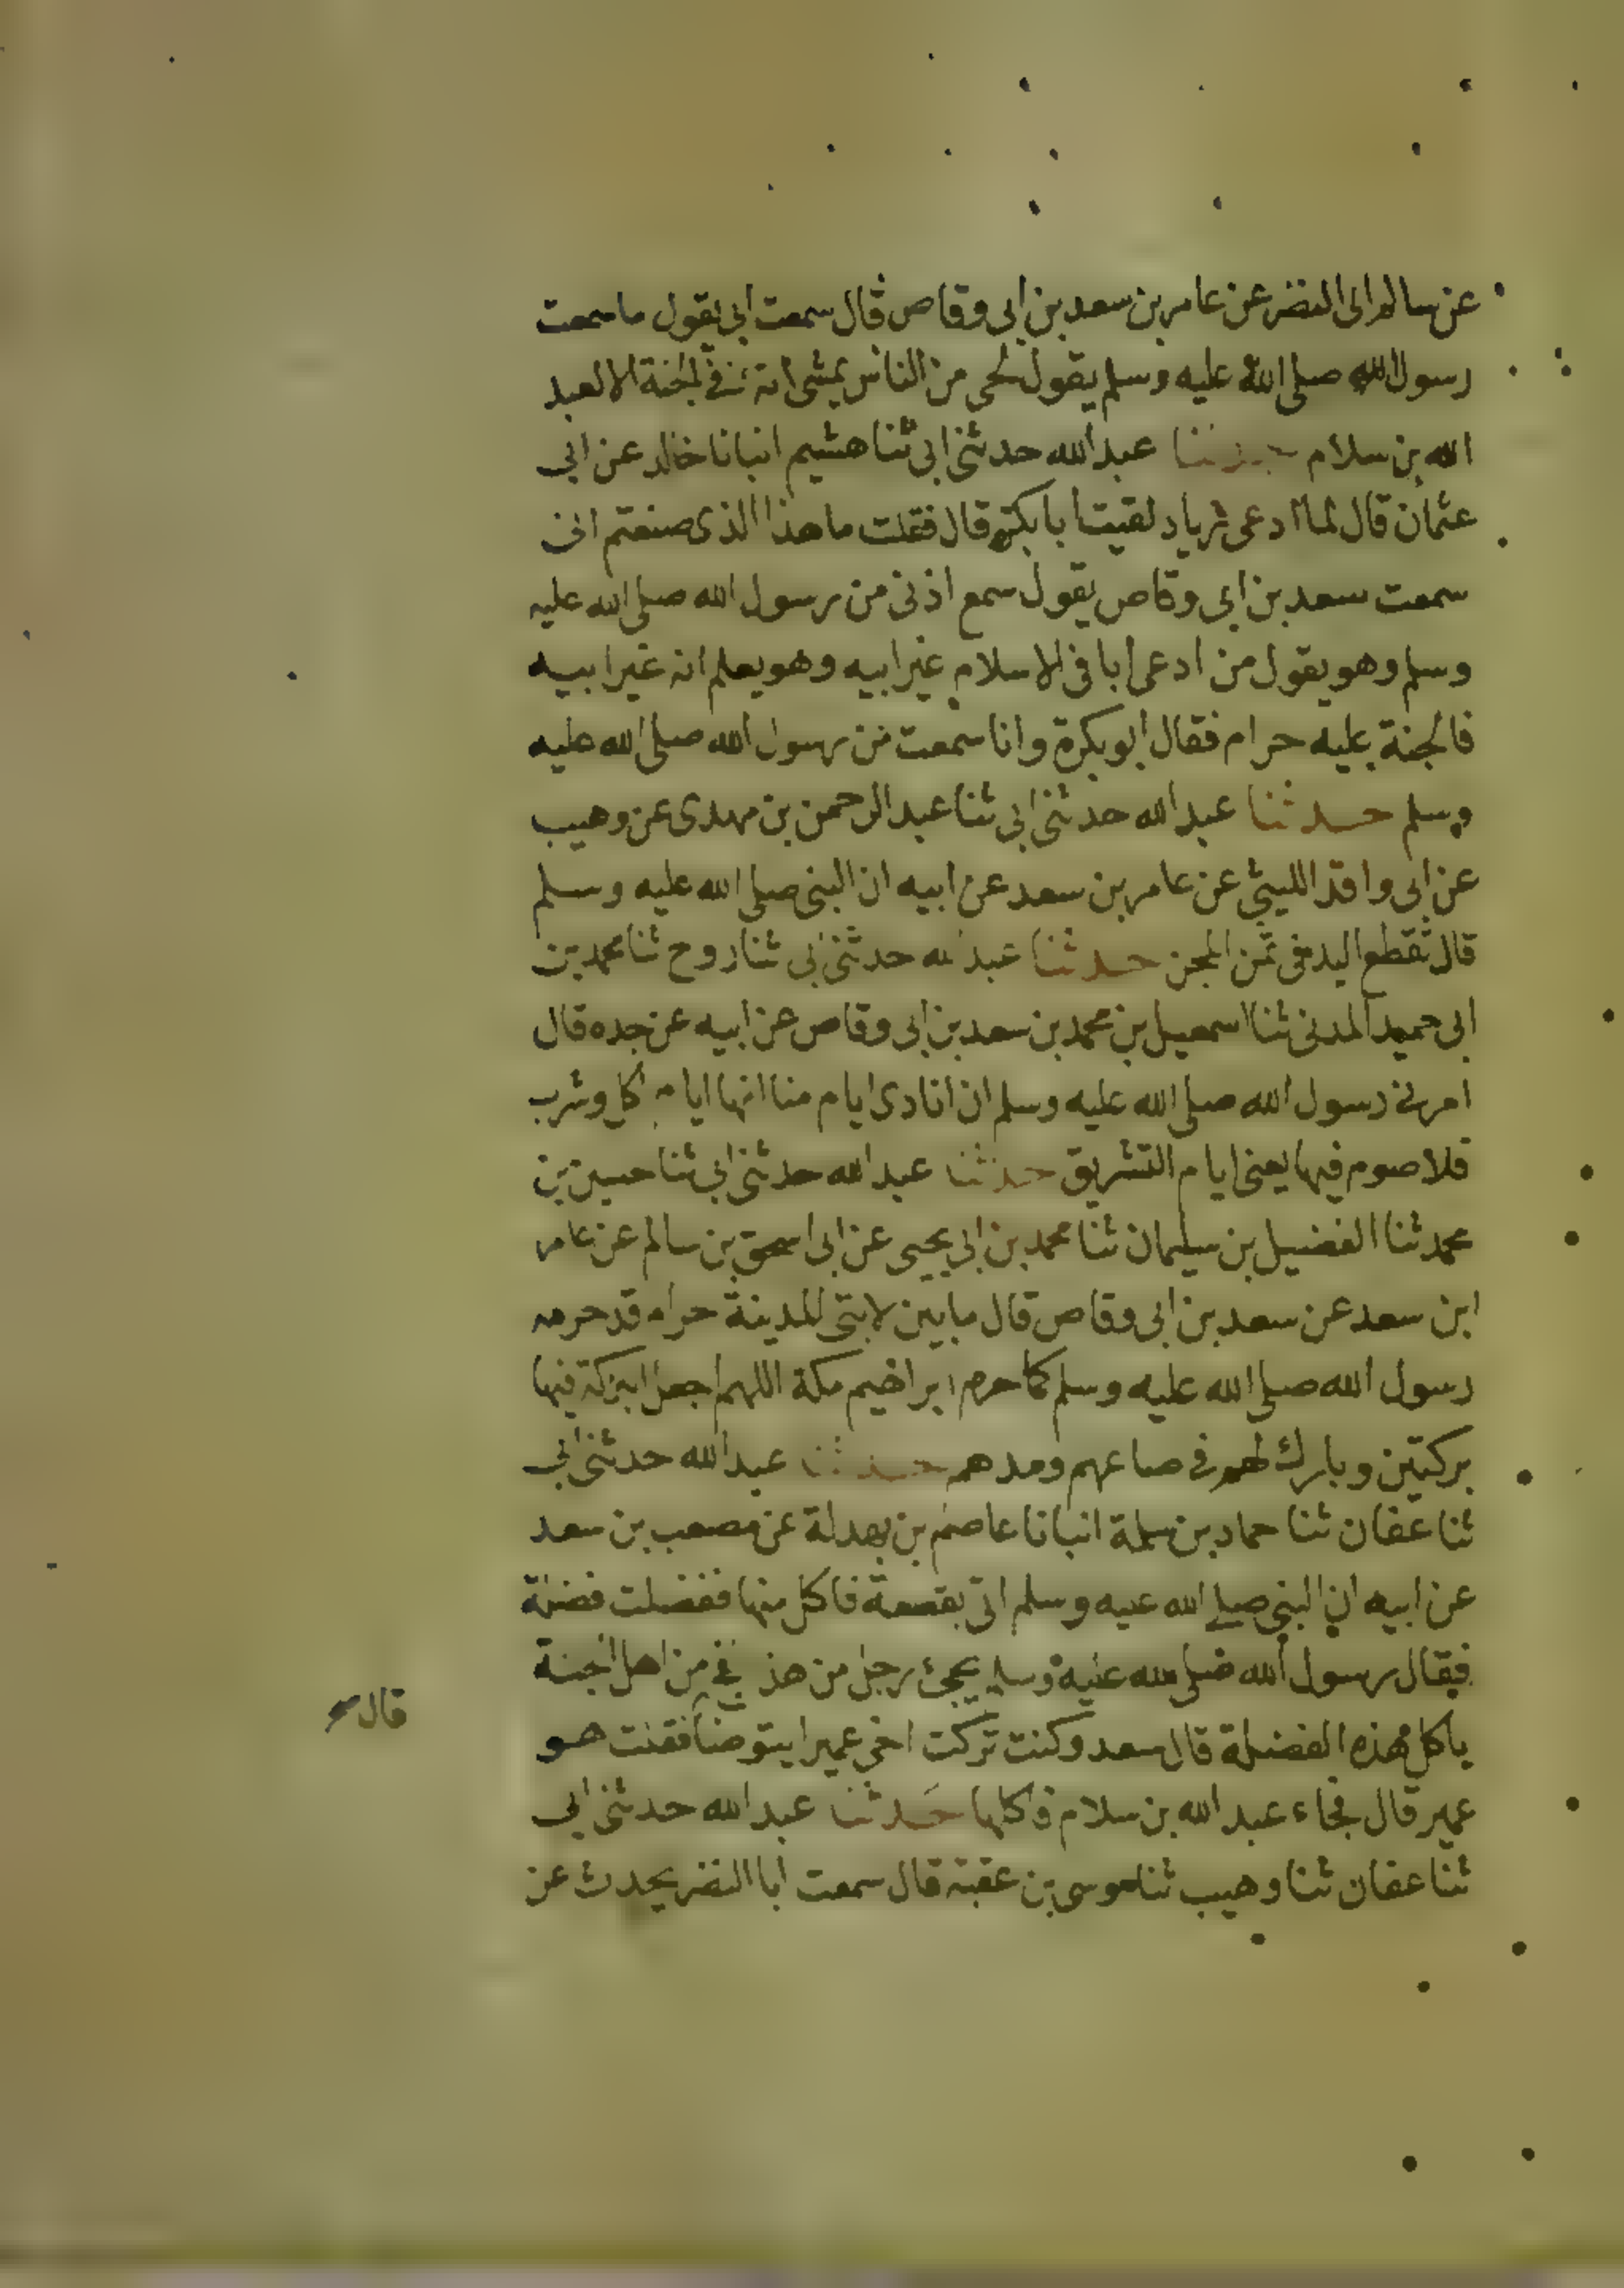 عن سالم ابى النضر عن عامر بن سعد بن ابى وقاص قال سمعت ابى يقول ما سمعت
رسول الله صلى الله عليه وسلم يقول لحى من الناس يمشى انه فى الجنة الا لعبد
الله بن سلام حدثنا عبد الله حدثنى ابى ثنا هشيم انبانا خالد عن ابى
عثمان قال لما ادعى زياد لقيت ابا بكرة قال فقلت ما هذا الذى صنعتم انى
سمعت سعد بن ابى وقاص يقول سمع اذنى من رسول الله صلى الله عليه
وسلم وهو يقول من ادعى ابا فى الاسلام غير ابيه وهو يعلم انه غير ابيه
فالجنة عليه حرام فقال ابو بكرة وانا سمعت من رسول الله صلى الله عليه
وسلم حدثنا عبد الله حدثنى ابى ثنا عبد الرحمن بن مهدى عن وهيب
عن ابى واقد الليثى عن عامر بن سعد عن ابيه ان النبى صلى الله عليه وسلم
قال تقطع اليد فى ثمن المجن حدثنا عبد الله حدثنى ابى ثنا روح ثنا محمد بن
ابى حميد المدنى ثنا اسمعيل بن محمد بن سعد بن ابى وقاص عن ابيه عن جده قال
امرنى رسول الله صلى الله عليه وسلم ان انادى ايام منا انها ايام اكل وشرب
فلا صوم فيها يعنى ايام التشريق حدثنا عبد الله حدثنى ابى ثنا حسين بن
محمد ثنا الفضيل بن سليمان ثنا محمد بن ابى يحيى عن ابى اسحق بن سالم عن عامر
ابن سعد عن سعد بن ابى وقاص قال ما بين لابتى المدينة حرام قد حرمه
رسول الله صلى الله عليه وسلم كما حرم ابراهيم مكة اللهم اجعل البركة فيها
بركتين وبارك لهم فى صاعهم ومدهم حدثنا عبد الله حدثنى ابى
ثنا عفان ثنا حماد بن سلمة انبانا عاصم بن بهدلة عن مصعب بن سعد
عن ابيه ان النبى صلى الله عليه وسلم اتى بقصعة فاكل منها ففضلت فضلة
فقال رسول الله صلى الله عليه وسلم يجئ رجل من هذا الفج من اهل الجنة
ياكل هذه الفضلة قال سعد وكنت تركت اخى عميرا يتوضأ فقلت هو
عمير قال فجاء عبد الله بن سلام فاكلها حدثنا عبد الله حدثنى ابى
ثنا عفان ثنا وهيب ثنا موسى بن عقبة قال سمعت ابا النضر يحدث عن
قال